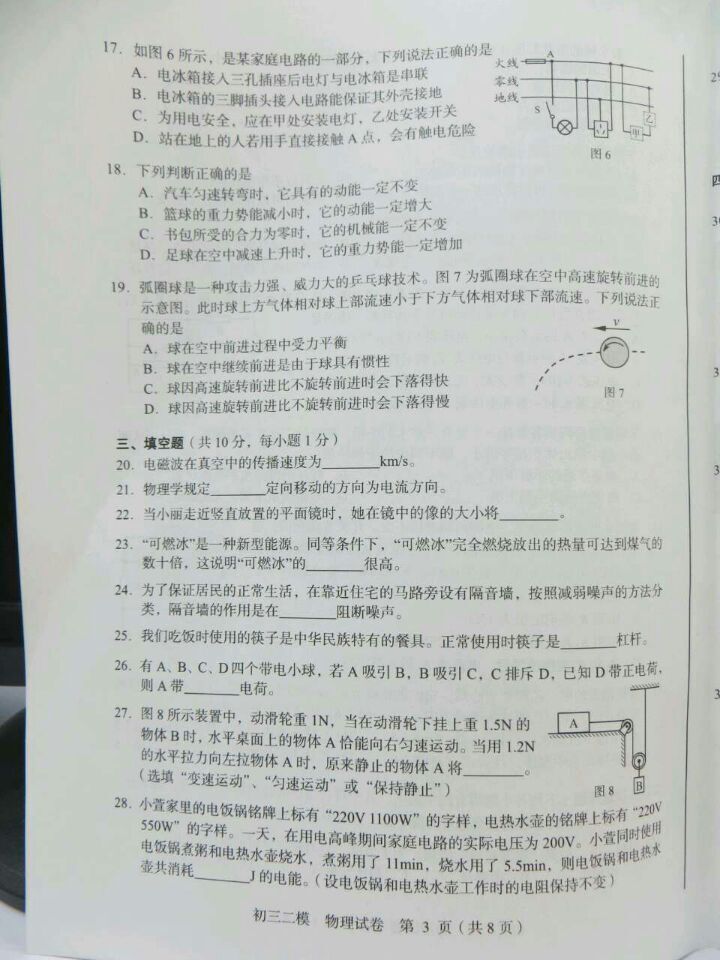 17. 如图 6 所示，是某家庭电路的一部分，下列说法正确的是
A. 电冰箱接入三孔插座后电灯与电冰箱是串联
B. 电冰箱的三脚插头接入电路能保证其外壳接地
C. 为用电安全，应在甲处安装电灯，乙处安装开关
D. 站在地上的人若用手直接接触 A 点，会有触电危险
火线
零线
地线
A
S
甲
乙
图 6
18. 下列判断正确的是
A. 汽车匀速转弯时，它具有的动能一定不变
B. 篮球的重力势能减小时，它的动能一定增大
C. 书包所受的合力为零时，它的机械能一定不变
D. 足球在空中减速上升时，它的重力势能一定增加
19. 弧圈球是一种攻击力强、威力大的乒乓球技术。图 7 为弧圈球在空中高速旋转前进的
示意图。此时球上方气体相对球上部流速小于下方气体相对球下部流速。下列说法正
确的是
A. 球在空中前进过程中受力平衡
B. 球在空中继续前进是由于球具有惯性
C. 球因高速旋转前进比不旋转前进时会下落得快
D. 球因高速旋转前进比不旋转前进时会下落得慢
v
图 7
三、填空题（共 10 分，每小题 1 分）
20. 电磁波在真空中的传播速度为______km/s。
21. 物理学规定______定向移动的方向为电流方向。
22. 当小丽走近竖直放置的平面镜时，她在镜中的像的大小将______。
23. “可燃冰”是一种新型能源。同等条件下，“可燃冰”完全燃烧放出的热量可达到煤气的
数十倍，这说明“可燃冰”的______很高。
24. 为了保证居民的正常生活，在靠近住宅的马路旁设有隔音墙，按照减弱噪声的方法分
类，隔音墙的作用是在______阻断噪声。
25. 我们吃饭时使用的筷子是中华民族特有的餐具。正常使用时筷子是______杠杆。
26. 有 A、B、C、D四个带电小球，若 A 吸引 B，B 吸引 C，C 排斥 D，已知 D 带正电荷，
则 A 带______电荷。
27. 图 8 所示装置中，动滑轮重 1N，当在动滑轮下挂上重 1.5N 的
物体 B 时，水平桌面上的物体 A 恰能向右匀速运动。当用 1.2N
的水平拉力向左拉物体 A 时，原来静止的物体 A 将______。
（选填“变速运动”、“匀速运动”或“保持静止”）
A
B
图 8
28. 小萱家里的电饭锅铭牌上标有“220V 1100W”的字样，电热水壶的铭牌上标有“220V
550W”的字样。一天，在用电高峰期间家庭电路的实际电压为 200V。小萱同时使用
电饭锅煮粥和电热水壶烧水，煮粥用了 11min，烧水用了 5.5min，则电饭锅和电热水
壶共消耗______J 的电能。（设电饭锅和电热水壶工作时的电阻保持不变）
初三二模 物理试卷 第 3 页（共 8 页）